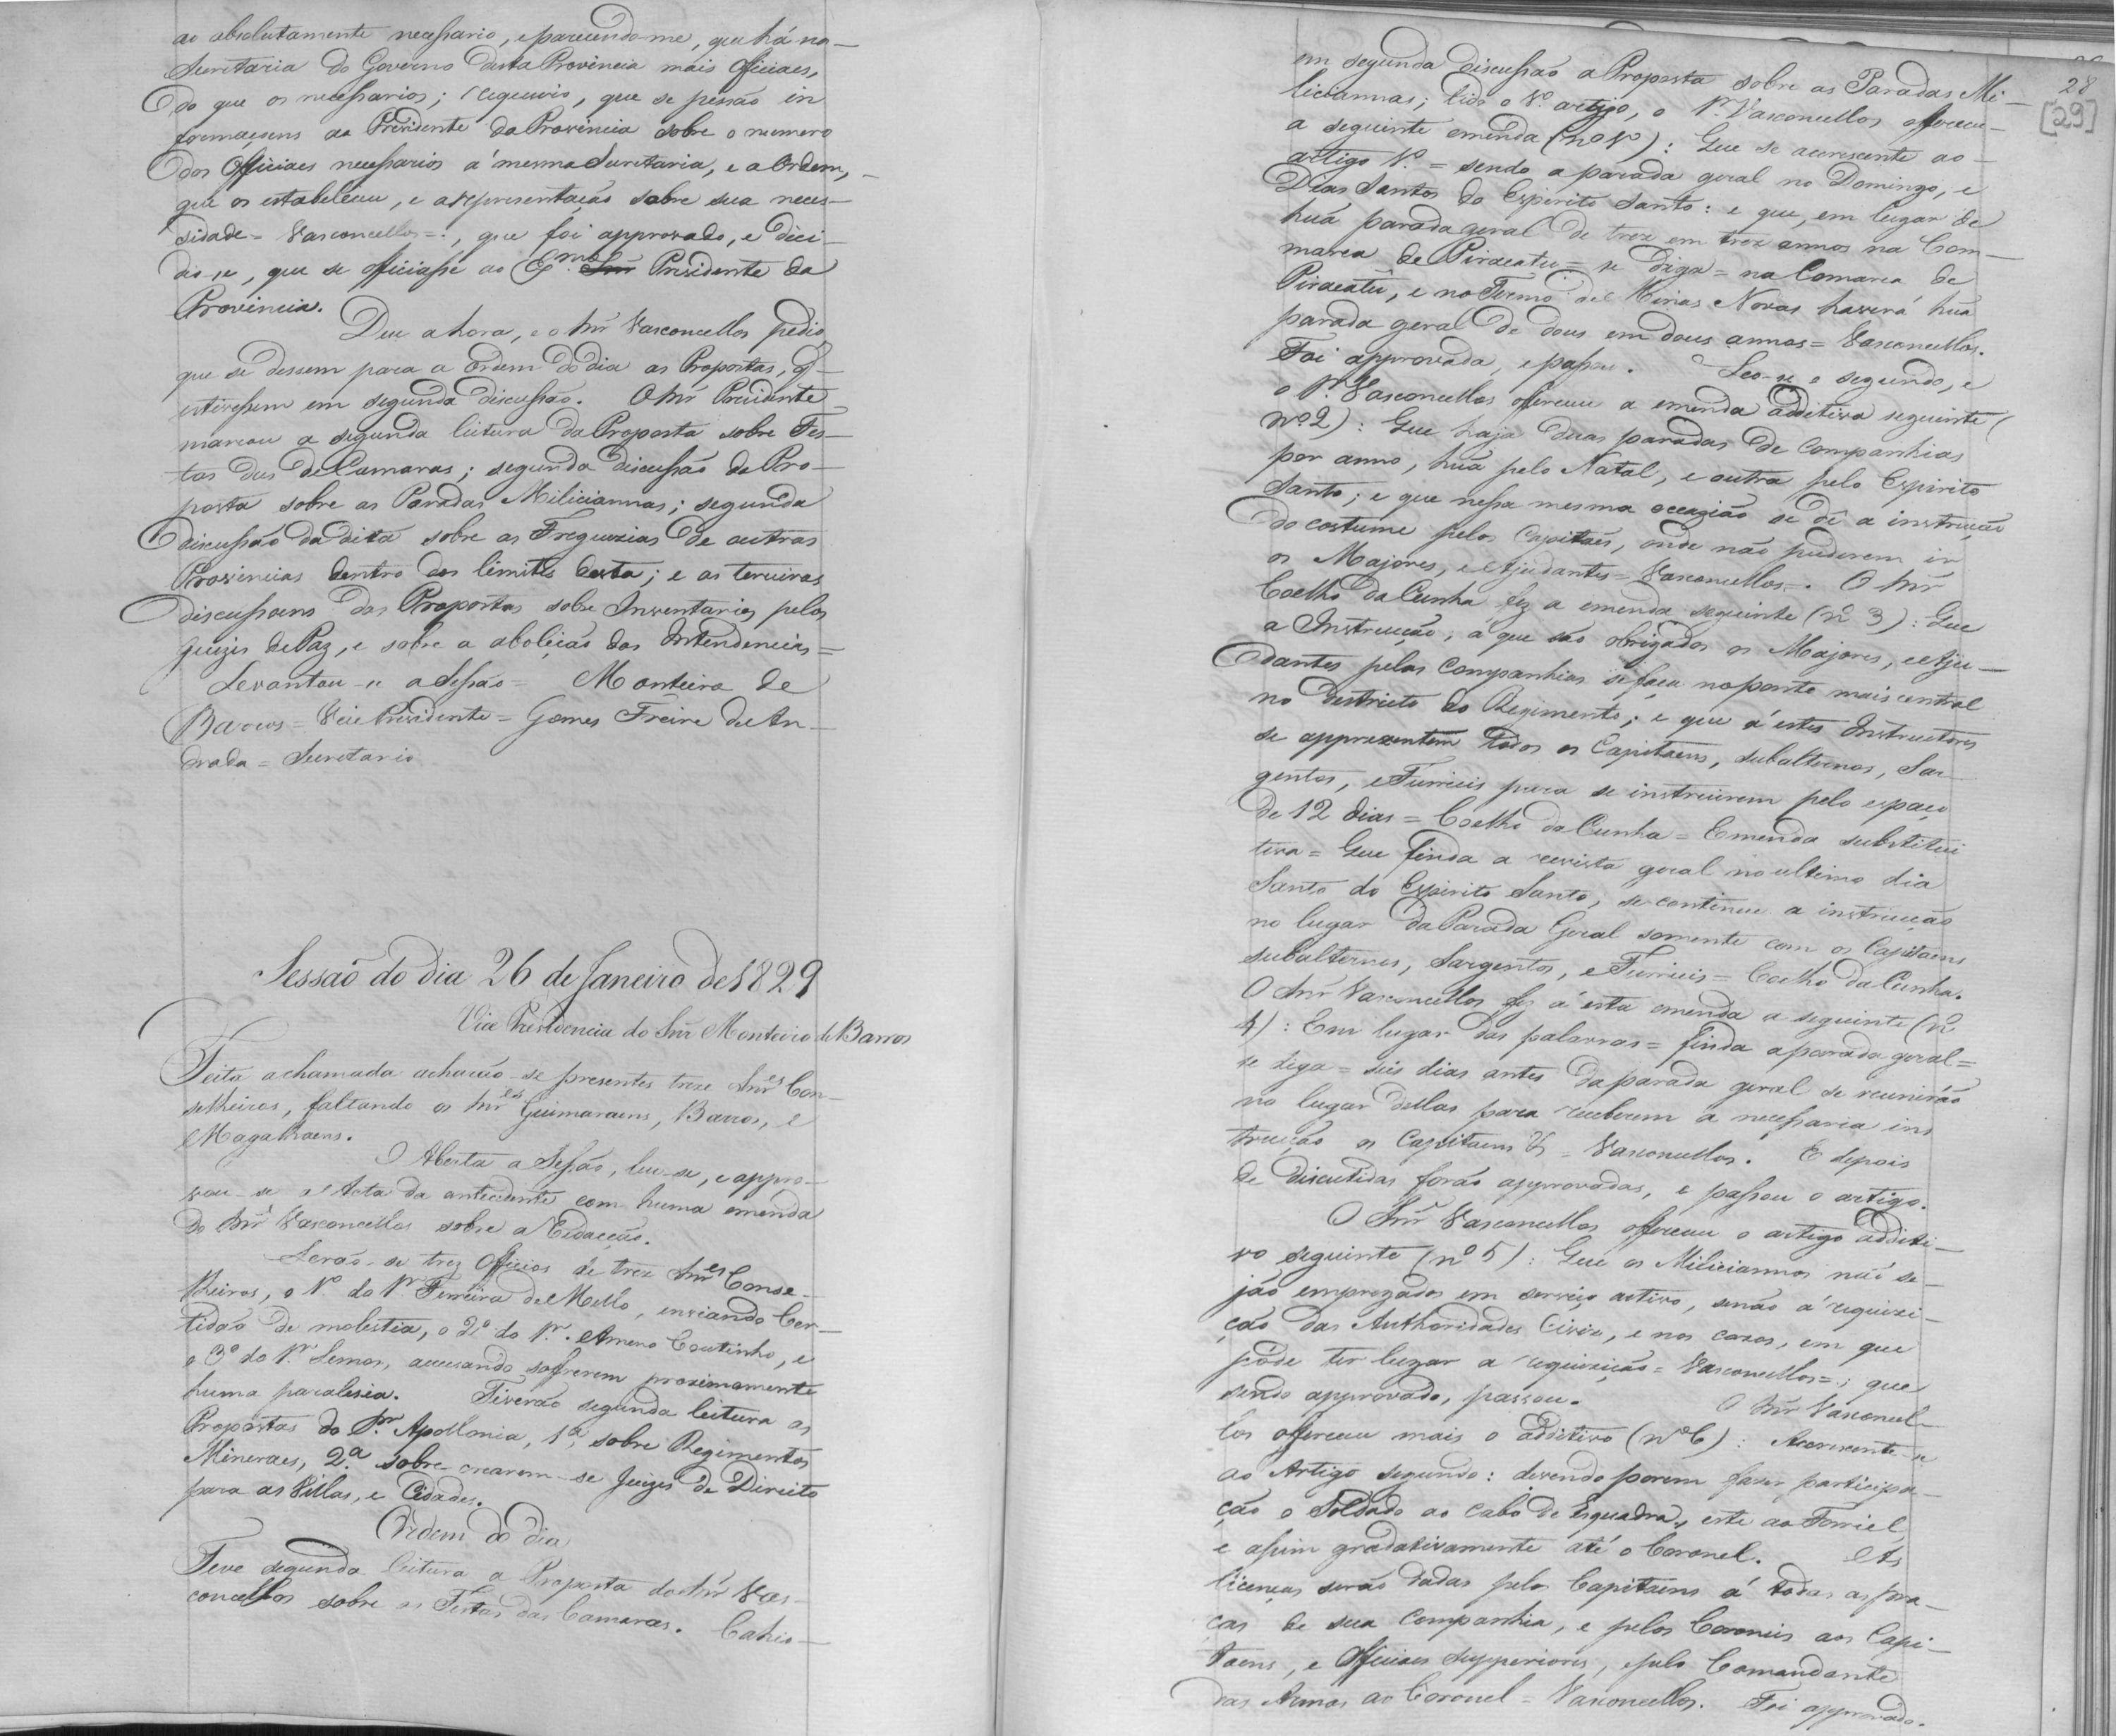 ao absolutamente necessario, e parecendo-me, que há na
Secretaria do Governo desta Provincia mais Officiaes,
do que os necessarios; requeiro, que se pessão in
formaçoens ao Presidente da Provincia sobre o numero
dos Officiaes necessarios á mesma Secretaria, e a Ordem,
que os estabeleceu, e a representação sobre sua neces-
sidade = Vasconcellos =, que foi approvado, e deci-
dio-se, que se officiasse ao Exmo. Snr Presidente da
Provincia.
Deu a hora, e o Snr Vasconcellos pedio,
que se dessem para a Ordem do dia as Propostas, q̃
estivessem em segunda discussão. O Snr Presidente
marcou a segunda leitura da Proposta sobre Fes-
tas das de Camaras; segunda discussão da Pro-
posta sobre as Paradas Miliciannas; segunda
discussão da dita sobre as Freguezias de outras
Provincias dentro dos limites desta; e as terceiras
discussoens das Propostas sobre Inventarios pelos
Juizes de Paz, e sobre a abolição das Intendencias =
Levantou-se a Sessão = Monteiro de
Barros = Vice Presidente = Gomes Freire de An-
drada = Secretario
Sessão do dia 26 de Janeiro de 1829
Vice Presidencia do Snr Monteiro de Barros
Feita a chamada acharão-se presentes treze Snres Con-
selheiros, faltando os Snres Guimaraens, Barros, e
Magalhaens.
Aberta a Sessão, leu-se, e appro-
vou-se a Acta da antecedente com huma emenda
do Snr Vasconcellos sobre a Redacção.
Lerão-se trez Officios de trez Snres Conse-
lheiros, o 1º. do Sr Ferreira de Mello, enviando Cer-
tidão de molestia, o 2º do Sr. Ameno Coutinho, e
o 3º do Sr. Lemos, accusando soffrerem proximamente
huma paralisia. Tiverão segunda leitura as
Propostas do Sr. Apollonia, 1ª, sobre Regimentos
Mineraes, 2.ª sobre crearem-se Juizes de Direito
para as Villas, e Cidades.
Ordem do dia
Teve segunda leitura a Proposta do Snr Vas-
concellos sobre as Festas das Camaras. Cahio-
28
[29]
em segunda discussão a Proposta sobre as Paradas Mi-
liciannas; lido o 1º. artigo, o Sr. Vasconcellos offereceu
a seguinte emenda (nº 1º): Que se accrescente ao
artigo 1º. = sendo a parada geral no Domingo, e
Dias Santos do Espirito Santo: e que, em lugar de
huã parada geral de trez em trez annos na Com-
marca de Piracatu = se diga = na Comarca de
Piracatû, e no Termo de Minas Novas haverá huã
parada geral de dous em dous annos = Vasconcellos.
Foi approvada, e passou. Leo-se o segundo, e
o Sr. Vasconcellos offereceu a emenda additiva seguinte (
nº 2): Que haja duas paradas de Companhias
por anno, huã pelo Natal, e outra pelo Espirito
Santo; e que nessa mesma occazião se dê a instrucção
do costume pelos Capitães, onde não puderem ir
os Majores, e Ajudantes = Vasconcellos =. O Snr
Coelho da Cunha fez a emenda seguinte (nº 3): Que
a Instrucção, á que são obrigados os Majores, e Aju-
dantes pelas Companhias se faça no ponto mais central
no Destricto do Regimento; e que á estes Instructores
se apprezentem todos os Capitaens, subalternos, Sar-
gentos, e Furrieis para se instruirem pelo espaço
de 12 dias = Coelho da Cunha = Emenda substitui
tiva = Que finda a revista geral no ultimo dia
Santo do Espirito Santo, se continue a instrucção
no lugar da Parada Geral somente com os Capitaens
subalternos, Sargentos, e Furrieis = Coelho da Cunha.
O Snr Vasconcellos fez á esta emenda a seguinte (nº
4): Em lugar das palavras = finda a parada geral =
se diga = seis dias antes da parada geral se reunirão
no lugar dellas para receberem a necessaria ins
trucção os Capitaens & = Vasconcellos. E depois
de discutidas forão approvadas, e passou o artigo.
O Snr Vasconcellos offereceu o artigo additi-
vo seguinte (nº 5): Que os Miliciannos não se-
jão empregados em serviço activo, senão á requizi-
ção das Authoridades Civiz, e nos cazos, em que
póde ter lugar a requizição = Vasconcellos =; que
sendo approvado, passou. O Snr Vasconcel-
los offereceu mais o additivo (nº 6): Accrescente-se
ao Artigo segundo: devendo porem fazer participa-
ção o Soldado ao Cabo de Esquadra, este ao Forriel
e assim gradativamente até o Coronel. As
licenças serão dadas pelos Capitaens á todas as pra-
ças de sua Companhia, e pelos Coroneis aos Capi-
taens, e Officiaes Supperiores, e pelo Comandante
das Armas ao Coronel = Vasconcellos. Foi approvado.